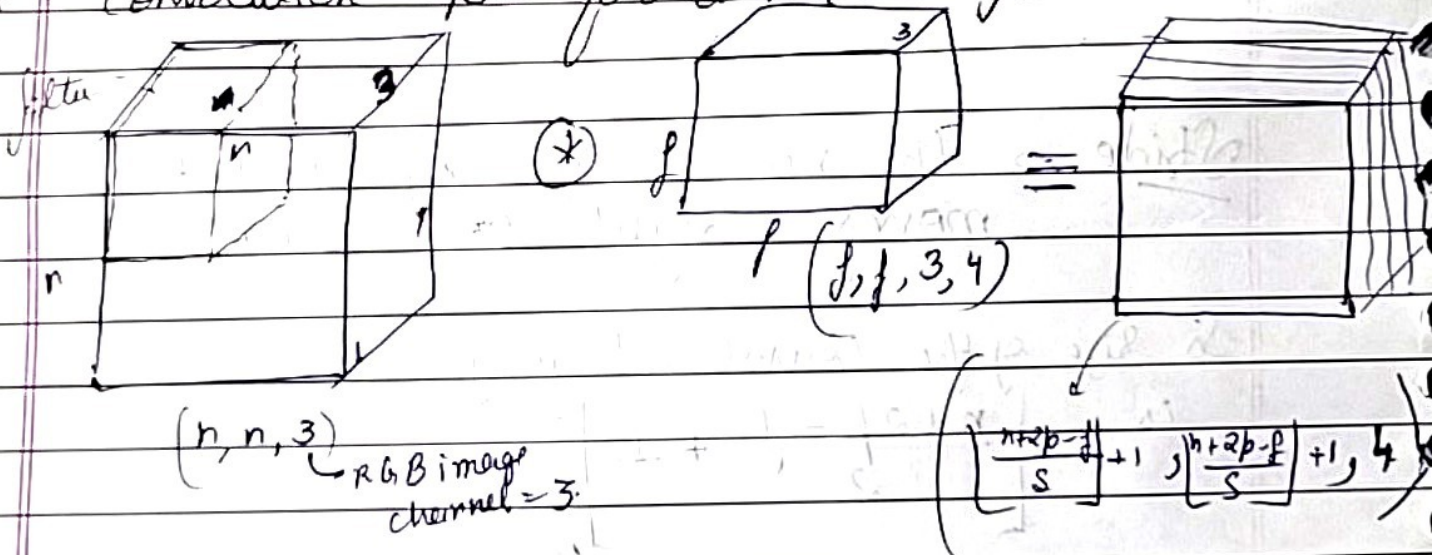 n 3
n
⊛
3
f
=
n
f
(f, f, 3, 4)
(n, n, 3)
RGB image
channel = 3.
(⌊(n+2p-f)/s⌋+1, ⌊(n+2p-f)/s⌋+1, 4)